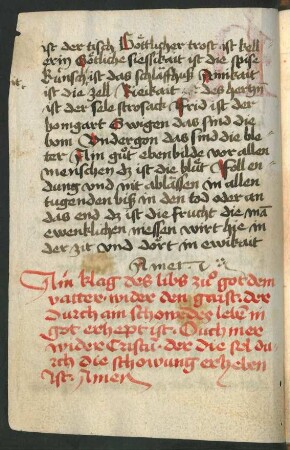 ist der tisch Göttlicher trost ist kell
erin Götliche siessikait ist die spise
Brünsch ist das schlaffhuß Ainikait
ist die zell Rieikait des hertzn
ist der sele strosack Frid ist der
bomgart Ewigen das sind die
bom Vndergon das sind die ble
ter Ain güt ebenbilde vor allen
menschen dz ist die blüt Foll en
dung vnd nit ablassen in allen
tugenden biß in den tod oder an
das end dz ist die frucht die mā
ewenklichen niessen wirt hie in
der zit vnd dort in ewikait
Amen
Ain klag des libs zuo got dem
vatter wider den gaist der
durch ain schowends leben in
got erhept ist Ouch mer
wider Cristū der die sel du
rch die schowung erheben
ist Amen